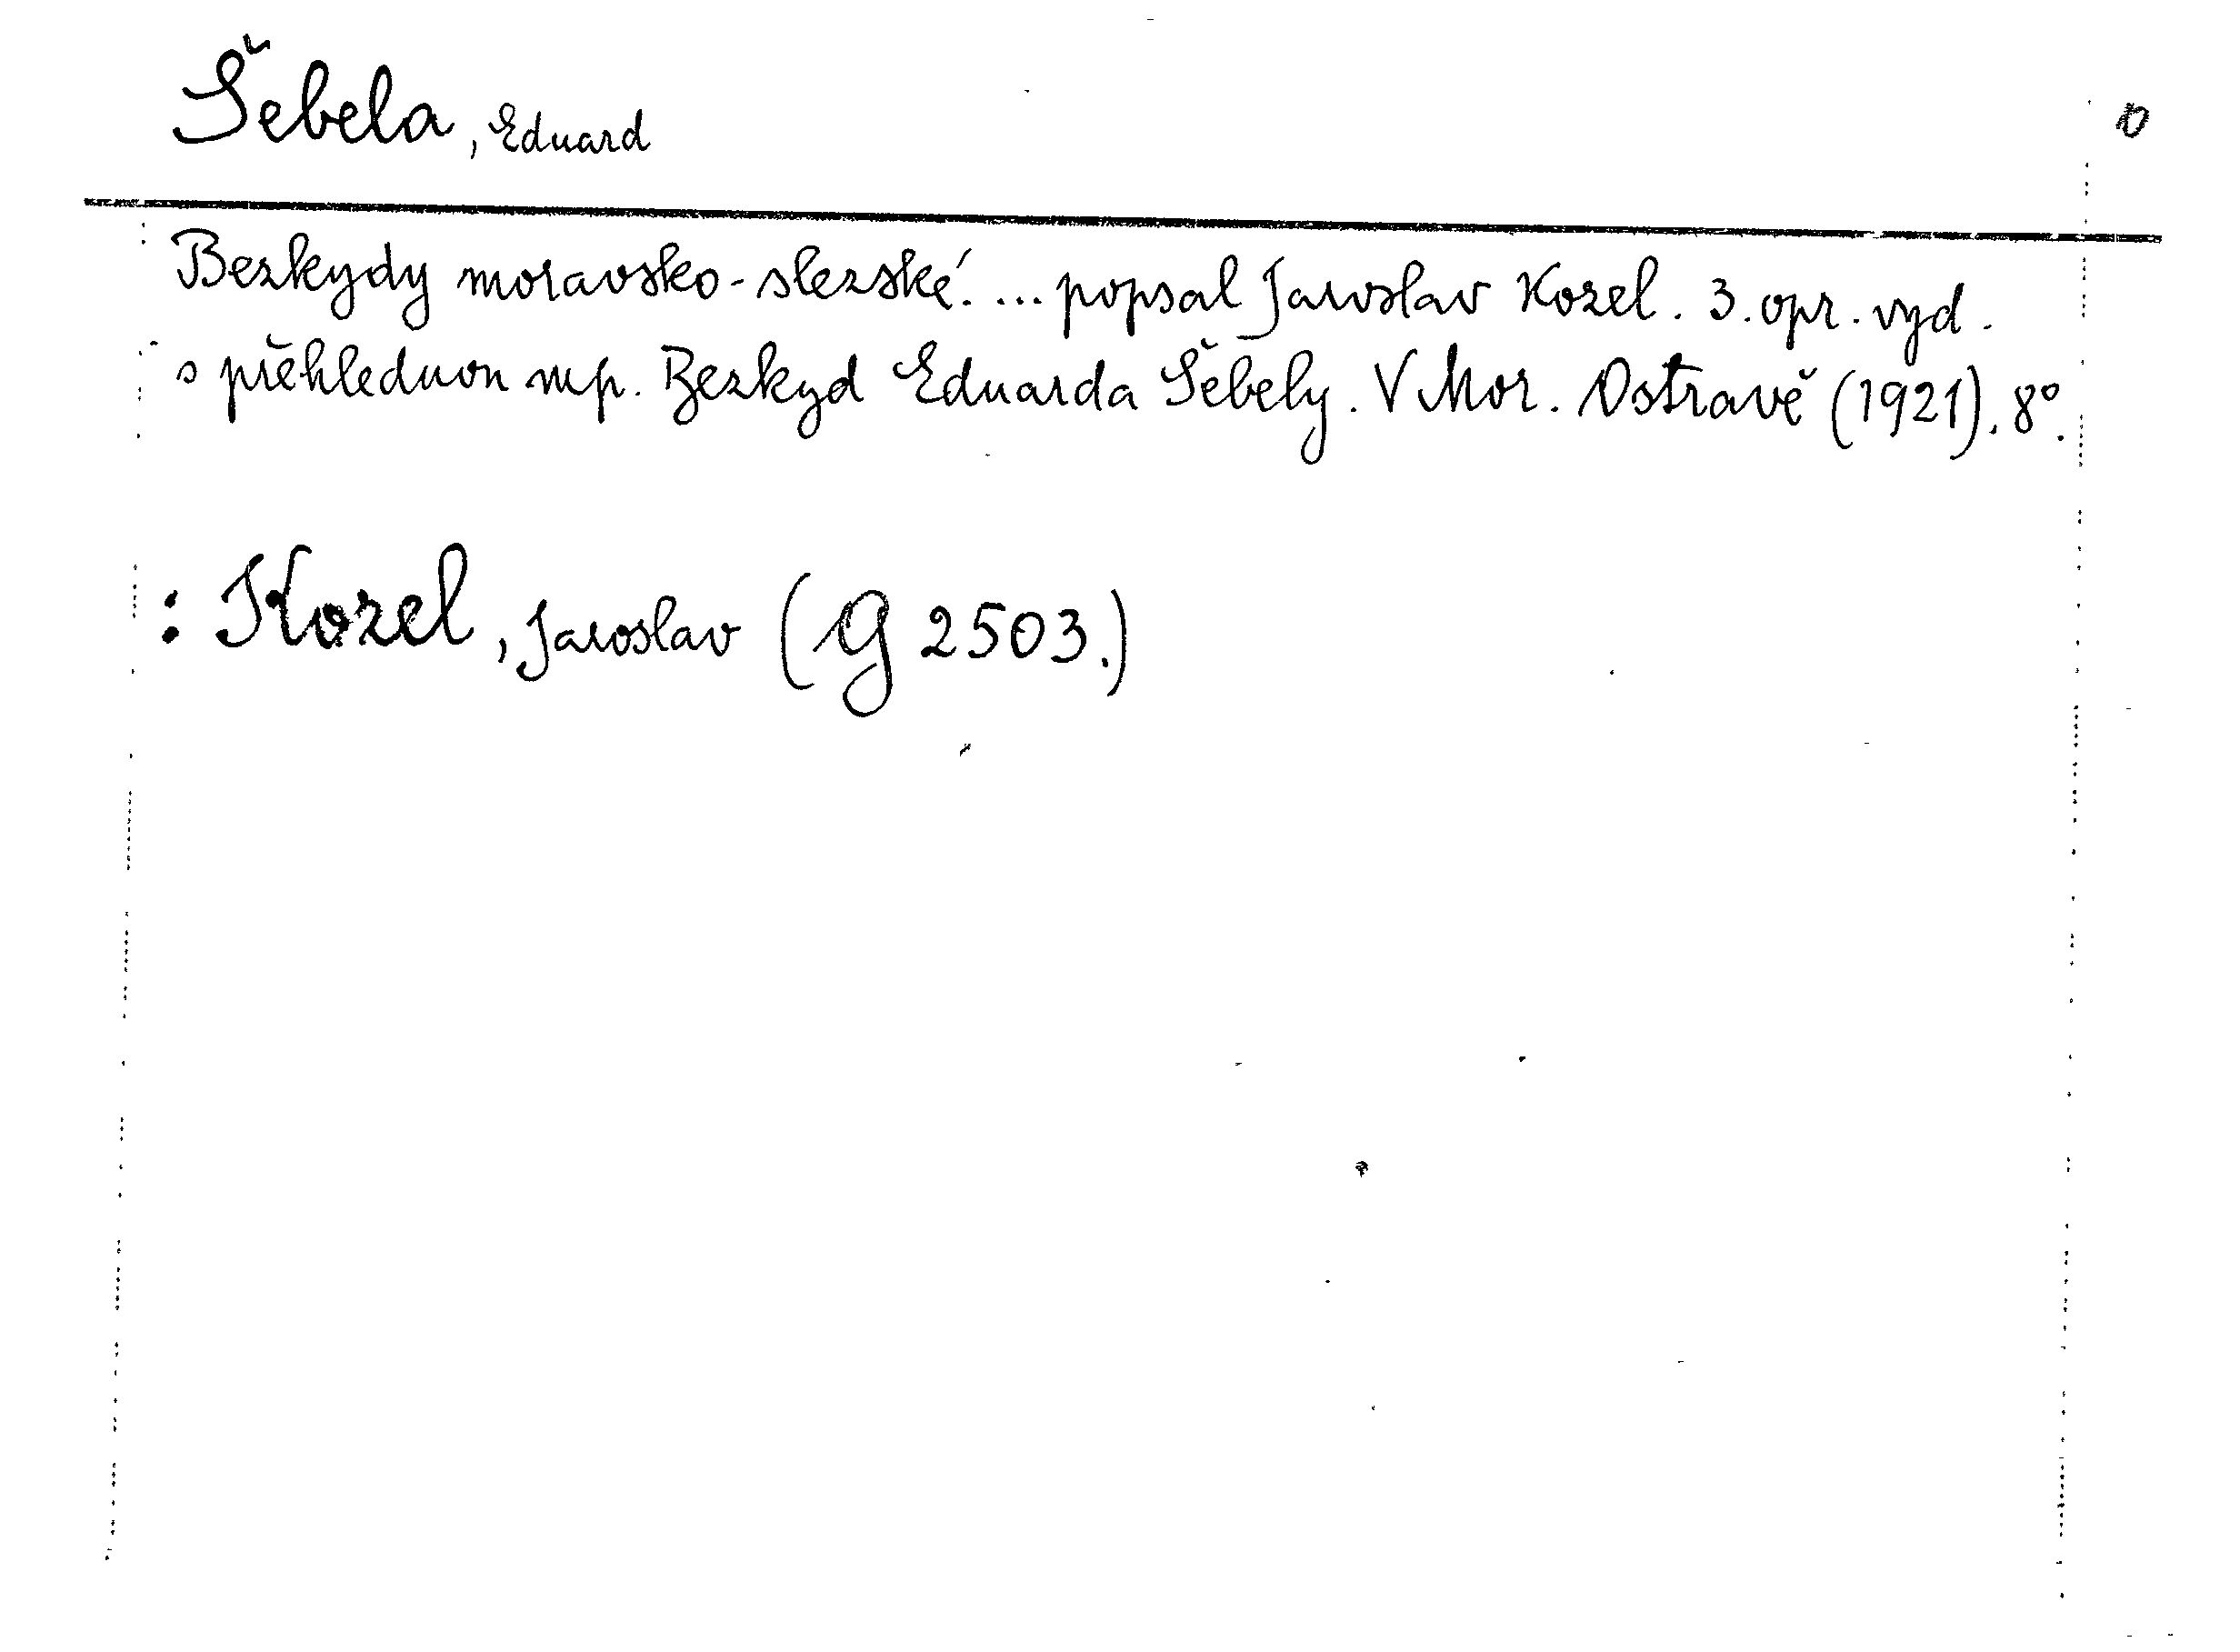 Šebela, Eduard
Bezkydy moravsko-slezské. ... popsal Jaroslav Kozel. 3. opr. vyd.
s přehlednou mp. Bezkyd Eduarda Šebely. V Mor. Ostravě (1921). 8°.
: Kozel, Jaroslav (G 2503.)